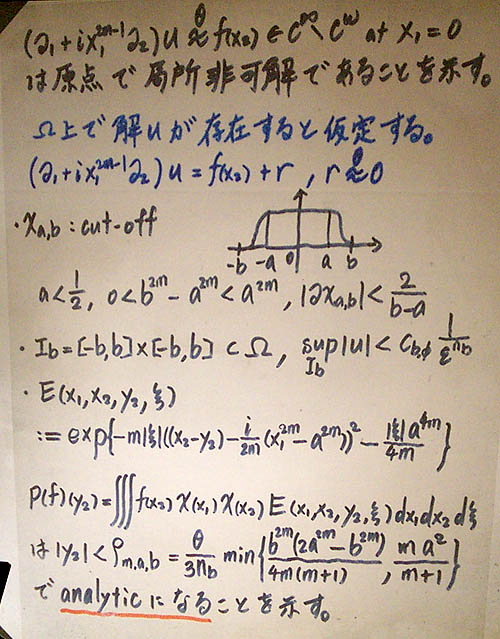 (∂₁+ix₁²ᵐ⁻¹∂₂)u ≈^θ f(x₂) ∈ C^∞∖C^ω at x₁=0
は原点で局所非可解であることを示す。
Ω上で解uが存在すると仮定する。
(∂₁+ix₁²ᵐ⁻¹∂₂)u = f(x₂)+r , r ≈^θ 0
・χ_{a,b} : cut-off
-b -a 0 a b
a < 1/2, 0 < b²ᵐ - a²ᵐ < a²ᵐ, |∂χ_{a,b}| < 2/(b-a)
・I_b = [-b,b]×[-b,b] ⊂ Ω, sup_{I_b} |u| < C_{b,ϕ} 1/ε^{n_b}
・E(x₁,x₂,y₂,ξ)
:= exp{-m|ξ|((x₂-y₂) - i/2m (x₁²ᵐ-a²ᵐ))² - |ξ|a⁴ᵐ/4m}
P(f)(y₂) = ∭ f(x₂) χ(x₁) χ(x₂) E(x₁,x₂,y₂,ξ) dx₁dx₂dξ
は |y₂| < ρ_{m,a,b} = θ/3n_b min{b²ᵐ(2a²ᵐ-b²ᵐ)/4m(m+1), ma²/m+1}
で analytic になることを示す。